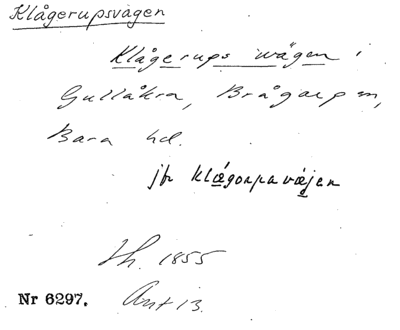 Klågerupsvägen
Klågerups wägen i
Gullåkra, Brågarp sn,
Bara hd.
jfr klǻgorpaväjen
Lh. 1855
Nr 6297. Ant 13.